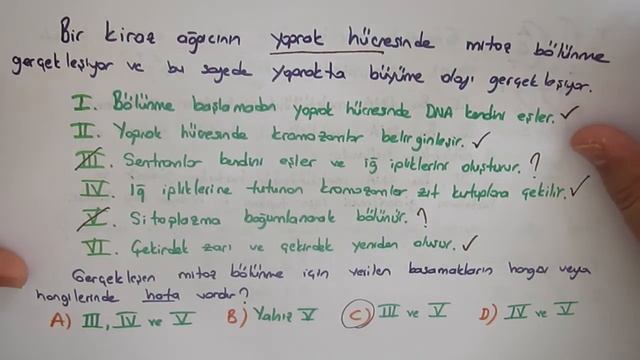 Bir kiraz ağacının yaprak hücresinde mitoz bölünme
gerçekleşiyor ve bu sayede yaprakta büyüme olayı gerçekleşiyor.
I. Bölünme başlamadan yaprak hücresinde DNA kendini eşler. ✓
II. Yaprak hücresinde kromozomlar belirginleşir. ✓
III. Sentrozomlar kendini eşler ve iğ ipliklerini oluşturur. ?
IV. İğ ipliklerine tutunan kromozomlar zıt kutuplara çekilir. ✓
V. Sitoplazma boğumlanarak bölünür. ?
VI. Çekirdek zarı ve çekirdek yeniden oluşur. ✓
Gerçekleşen mitoz bölünme için verilen basamakların hangisi veya
hangilerinde hata vardır?
A) III, IV ve V B) Yalnız V C) III ve V D) IV ve V